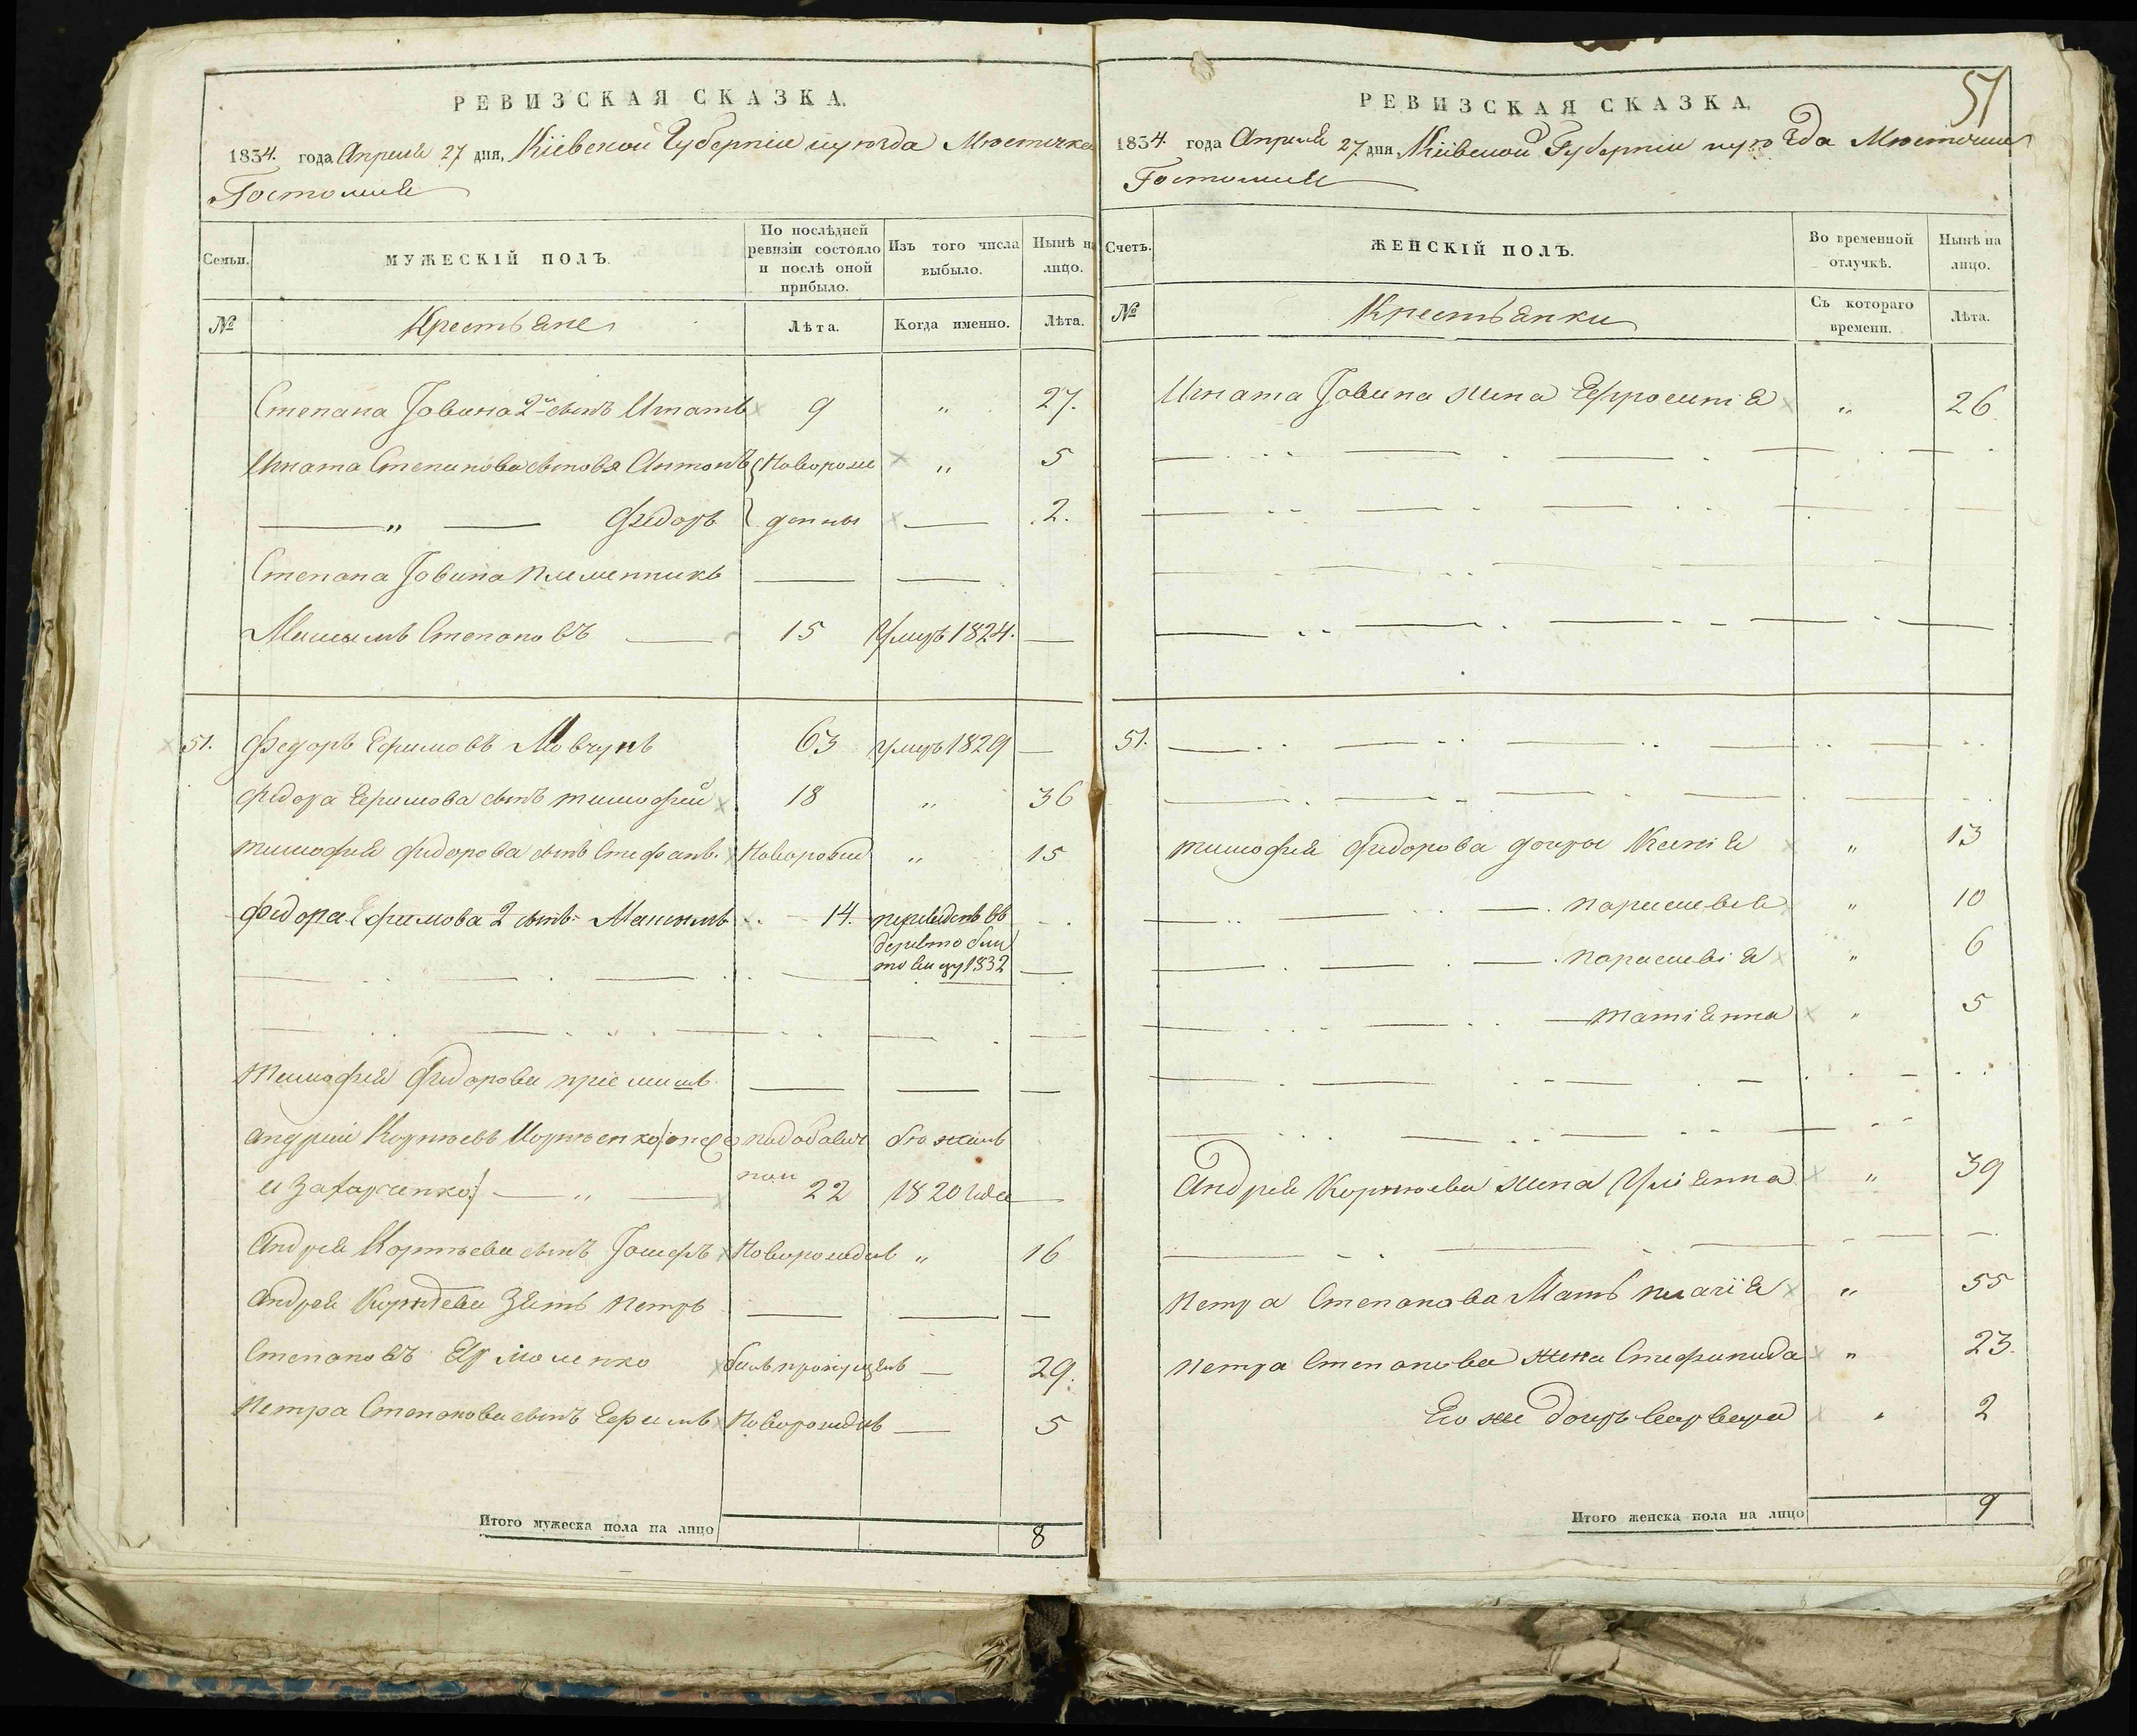 РЕВИЗСКАЯ СКАЗКА.
1834. года Апреля 27 дня, Кіевской Губерніи и уѣзда Мѣстечка
Гостомля
Семьи.
МУЖЕСКІЙ ПОЛЪ.
По послѣдней ревизіи состояло и послѣ оной прибыло.
Изъ того числа выбыло.
Нынѣ на лицо.
№
Крестьяне
Лѣта.
Когда именно.
Лѣта.
Степана Іовина 2й сынъ Игнатъ 9 „ 27.
Игната Степанова сыновя Антонъ Новорож „ 5
„ Федоръ денны 2.
Степана Іовина племенникъ
Максымъ Степановъ 15 Умеръ 1824.
51. Федоръ Ефимовъ Мовчунъ 63 умеръ 1829
Федора Ефимова сынъ тимофей 18 „ 36
тимофея Федорова сынъ Стефанъ. Новорожд „ 15
Федора Ефимова 2 сынъ Максымъ 14. переведенъ въ
1832
Тимофея Федорова пріемышъ.
андрей Корнѣевъ Корнѣенко
и Захарченко 22 1820 года
Андрея Корнѣева сынъ Іосифъ Новорожденъ „ 16
андрея Корнѣева Зять петръ
Степановъ Ярмоленко былъ пропущенъ 29.
петра Степанова сынъ Ефимъ Новорожденъ 5
Итого мужеска пола на лицо 8
51
РЕВИЗСКАЯ СКАЗКА.
1834. года Апреля 27 дня, Кіевской Губерніи и уѣзда Мѣстечка
Гостомля
Счетъ.
ЖЕНСКІЙ ПОЛЪ.
Во временной отлучкѣ.
Нынѣ на лицо.
№
Крестьянки
Съ котораго времени.
Лѣта.
Игната Іовина жена Ефросинія „ 26
51.
тимофея Федорова дочери Ксенія „ 13
параскевія „ 10
параскевія „ 6
татіянна „ 5
Андрея Корнѣева жена Уліянна „ 39
петра Степанова Мать пелагія „ 55
петра Степанова жена Стефанида „ 23.
Его же дочь варвара „ 2
Итого женска пола на лицо 9